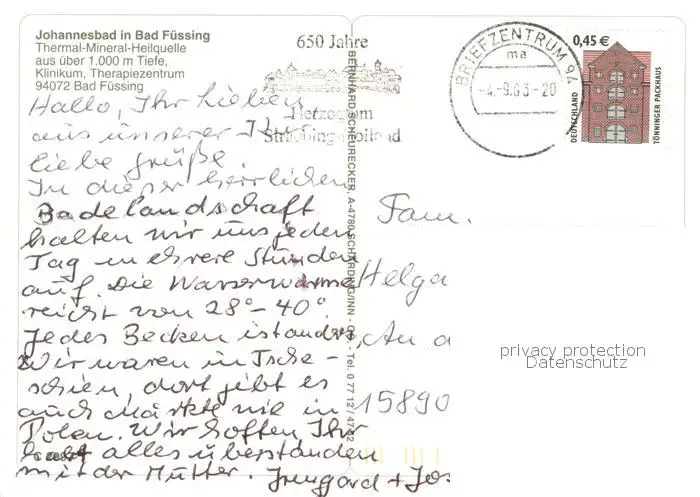 Johannesbad in Bad Füssing
Thermal-Mineral-Heilquelle
aus über 1.000 m Tiefe,
Klinikum, Therapiezentrum
94072 Bad Füssing
650 Jahre
Herzogtum
Straubing-Holland
BRIEFZENTRUM 94
ma
-4.-9.03-20
0,45 €
DEUTSCHLAND
TÖNNINGER PACKHAUS
BERNHARD SCHEURECKER, A-4780 SCHÄRDING/INN - Tel. 07712/4782
Hallo, Ihr Lieben
aus unserer
liebe Grüße.
In dieser herrlichen
Badelandschaft
halten wir uns jeden
Tag mehrere Stunden
auf. Die Wasserwärme
reicht von 28°-40°.
Jedes Becken ist anders.
Wir waren in Tsche-
chien, dort gibt es
auch Märkte wie in
Polen. Wir hoffen Ihr
habt alles überstanden
mit der Mutter. Irmgard + Jos
Fam.
Helga
An d
15890
privacy protection
Datenschutz